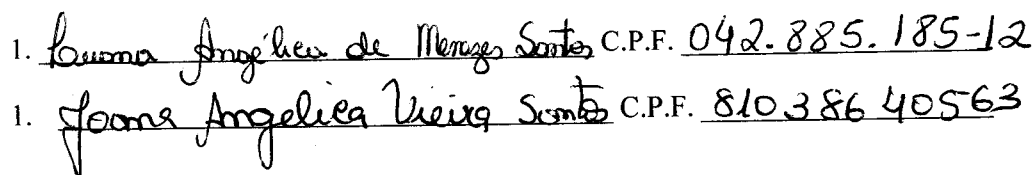 1. Luana Angélica de Menezes Santos C.P.F. 042.885.185-12
1. Joana Angelica Vieira Santos C.P.F. 810386 40563